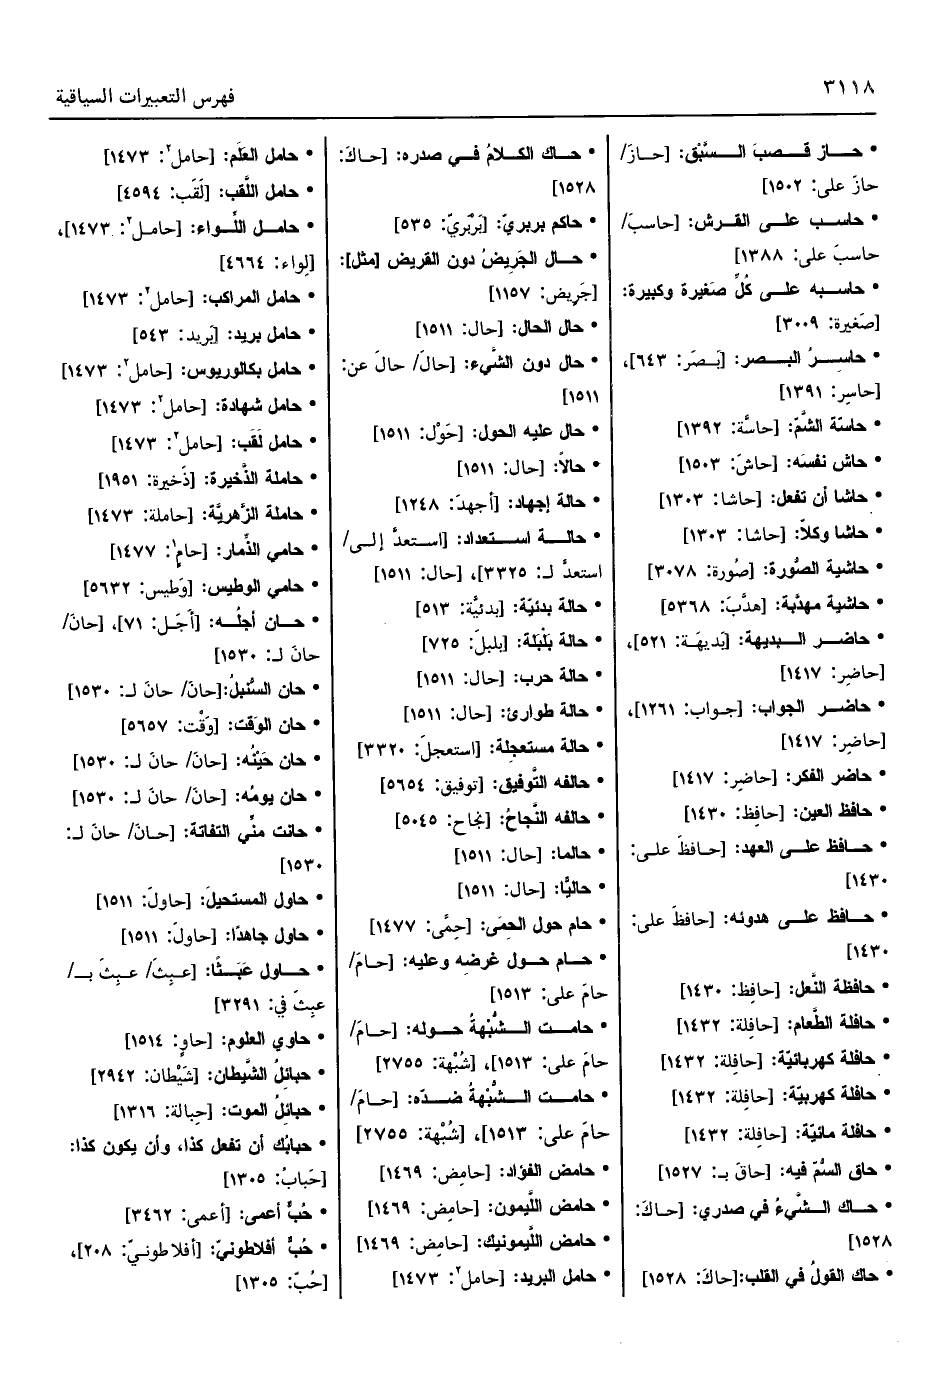 ٣١١٨
فهرس التعبيرات السياقية
• حاز قصبَ السَّبْق: [حازَ/
حازَ على: ١٥٠٢]
• حاسب على القرش: [حاسبَ/
حاسبَ على: ١٣٨٨]
• حاسبه على كُلِّ صغيرة وكبيرة:
[صَغيرة: ٣٠٠٩]
• حاسرُ البصر: [بَصَر: ٦٤٣]،
[حاسِر: ١٣٩١]
• حاسّة الشّمّ: [حاسَّة: ١٣٩٢]
• حاش نفسَه: [حاشَ: ١٥٠٣]
• حاشا أن تفعل: [حاشا: ١٣٠٣]
• حاشا وكلاّ: [حاشا: ١٣٠٣]
• حاشية الصُّورة: [صُورة: ٣٠٧٨]
• حاشية مهذّبة: [هذَّبَ: ٥٣٦٨]
• حاضر البديهة: [بَديهَة: ٥٢١]،
[حاضِر: ١٤١٧]
• حاضر الجواب: [جواب: ١٢٦١]،
[حاضِر: ١٤١٧]
• حاضر الفكر: [حاضِر: ١٤١٧]
• حافظ العين: [حافِظ: ١٤٣٠]
• حافظ على العهد: [حافظَ على:
١٤٣٠]
• حافظ على هدوئه: [حافظَ على:
١٤٣٠]
• حافظة النَّعل: [حافِظ: ١٤٣٠]
• حافلة الطَّعام: [حافِلة: ١٤٣٢]
• حافلة كهربائيّة: [حافِلة: ١٤٣٢]
• حافلة كهربيّة: [حافِلة: ١٤٣٢]
• حافلة مائيّة: [حافِلة: ١٤٣٢]
• حاق السُّمّ فيه: [حاقَ بـ: ١٥٢٧]
• حاك الشَّيءُ في صدري: [حاكَ:
١٥٢٨]
• حاك القولُ في القلب:[حاكَ: ١٥٢٨]
• حاك الكلامُ في صدره: [حاكَ:
١٥٢٨]
• حاكم بربريّ: [بَرْبَريّ: ٥٣٥]
• حال الجَريضُ دون القريض [مثل]:
[جَريض: ١١٥٧]
• حال الحال: [حال: ١٥١١]
• حال دون الشَّيء: [حالَ/ حالَ عن:
١٥١١]
• حال عليه الحول: [حَوْل: ١٥١١]
• حالاً: [حال: ١٥١١]
• حالة إجهاد: [أجهدَ: ١٢٤٨]
• حالة استعداد: [استعدَّ إلى/
استعدَّ لـ: ٣٣٢٥]، [حال: ١٥١١]
• حالة بدئيّة: [بدئيَّة: ٥١٣]
• حالة بَلْبَلة: [بلبلَ: ٧٢٥]
• حالة حرب: [حال: ١٥١١]
• حالة طوارئ: [حال: ١٥١١]
• حالة مستعجلة: [استعجلَ: ٣٣٢٠]
• حالفه التَّوفيق: [توفيق: ٥٦٥٤]
• حالفه النَّجاحُ: [نجاح: ٥٠٤٥]
• حالما: [حال: ١٥١١]
• حاليًّا: [حال: ١٥١١]
• حام حول الحِمَى: [حِمًى: ١٤٧٧]
• حام حول غرضه وعليه: [حامَ/
حامَ على: ١٥١٣]
• حامت الشُّبْهةُ حوله: [حامَ/
حامَ على: ١٥١٣]، [شُبْهة: ٢٧٥٥]
• حامت الشُّبْهةُ ضدّه: [حامَ/
حامَ على: ١٥١٣]، [شُبْهة: ٢٧٥٥]
• حامض الفؤاد: [حامِض: ١٤٦٩]
• حامض اللَّيمون: [حامِض: ١٤٦٩]
• حامض اللَّيمونيك: [حامِض: ١٤٦٩]
• حامل البريد: [حامل٢: ١٤٧٣]
• حامل العلَم: [حامل٢: ١٤٧٣]
• حامل اللَّقب: [لَقَب: ٤٥٩٤]
• حامل اللِّواء: [حامل٢: ١٤٧٣]،
[لِواء: ٤٦٦٤]
• حامل المراكب: [حامل٢: ١٤٧٣]
• حامل بريد: [بَريد: ٥٤٣]
• حامل بكالوريوس: [حامل٢: ١٤٧٣]
• حامل شهادة: [حامل٢: ١٤٧٣]
• حامل لَقَب: [حامل٢: ١٤٧٣]
• حاملة الذَّخيرة: [ذَخيرة: ١٩٥١]
• حاملة الزَّهريَّة: [حاملة: ١٤٧٣]
• حامي الذِّمار: [حامٍ١: ١٤٧٧]
• حامي الوطيس: [وَطيس: ٥٦٣٢]
• حان أجلُه: [أَجَل: ٧١]، [حانَ/
حانَ لـ: ١٥٣٠]
• حان السُّنبلُ:[حانَ/ حانَ لـ: ١٥٣٠]
• حان الوَقت: [وَقْت: ٥٦٥٧]
• حان حَيْنُه: [حانَ/ حانَ لـ: ١٥٣٠]
• حان يومُه: [حانَ/ حانَ لـ: ١٥٣٠]
• حانت منِّي التفاتة: [حانَ/ حانَ لـ:
١٥٣٠]
• حاول المستحيلَ: [حاولَ: ١٥١١]
• حاول جاهدًا: [حاولَ: ١٥١١]
• حاول عَبَثًا: [عبِثَ/ عبِثَ بـ/
عبِثَ في: ٣٢٩١]
• حاوي العلوم: [حاوٍ: ١٥١٤]
• حبائلُ الشَّيطان: [شَيْطان: ٢٩٤٢]
• حبائلُ الموت: [حِبالة: ١٣١٦]
• حبابُك أن تفعل كذا، وأن يكون كذا:
[حَبابُ: ١٣٠٥]
• حُبٌّ أعمى: [أعمى: ٣٤٦٢]
• حُبٌّ أفلاطونيّ: [أفلاطونيّ: ٢٠٨]،
[حُبّ: ١٣٠٥]